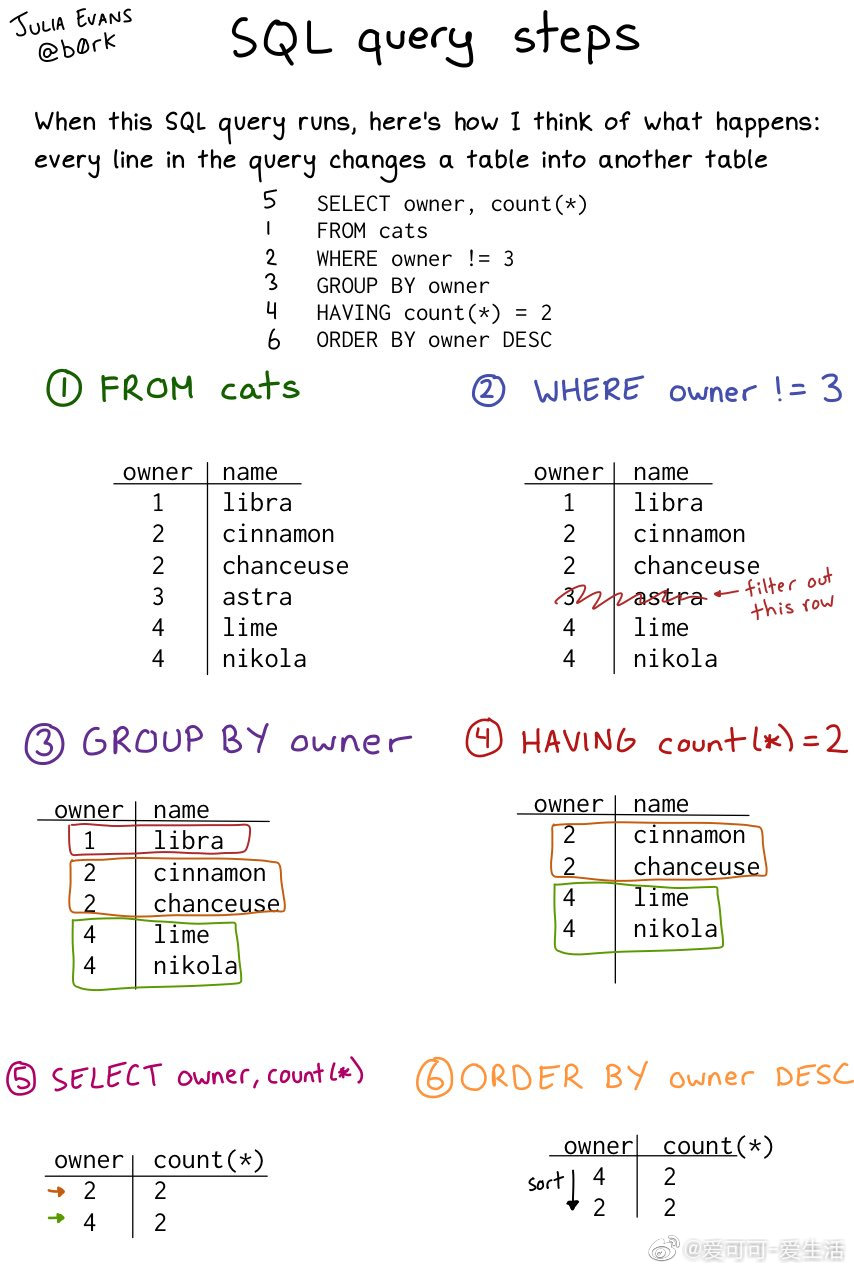 JULIA EVANS
@b0rk
SQL query steps
When this SQL query runs, here's how I think of what happens:
every line in the query changes a table into another table
5 SELECT owner, count(*)
1 FROM cats
2 WHERE owner != 3
3 GROUP BY owner
4 HAVING count(*) = 2
6 ORDER BY owner DESC
① FROM cats
owner name
1 libra
2 cinnamon
2 chanceuse
3 astra
4 lime
4 nikola
② WHERE owner != 3
owner name
1 libra
2 cinnamon
2 chanceuse
3 astra
filter out
this row
4 lime
4 nikola
③ GROUP BY owner
owner name
1 libra
2 cinnamon
2 chanceuse
4 lime
4 nikola
④ HAVING count(*) = 2
owner name
2 cinnamon
2 chanceuse
4 lime
4 nikola
⑤ SELECT owner, count(*)
owner count(*)
2 2
4 2
⑥ ORDER BY owner DESC
owner count(*)
sort
4 2
2 2
@爱可可-爱生活